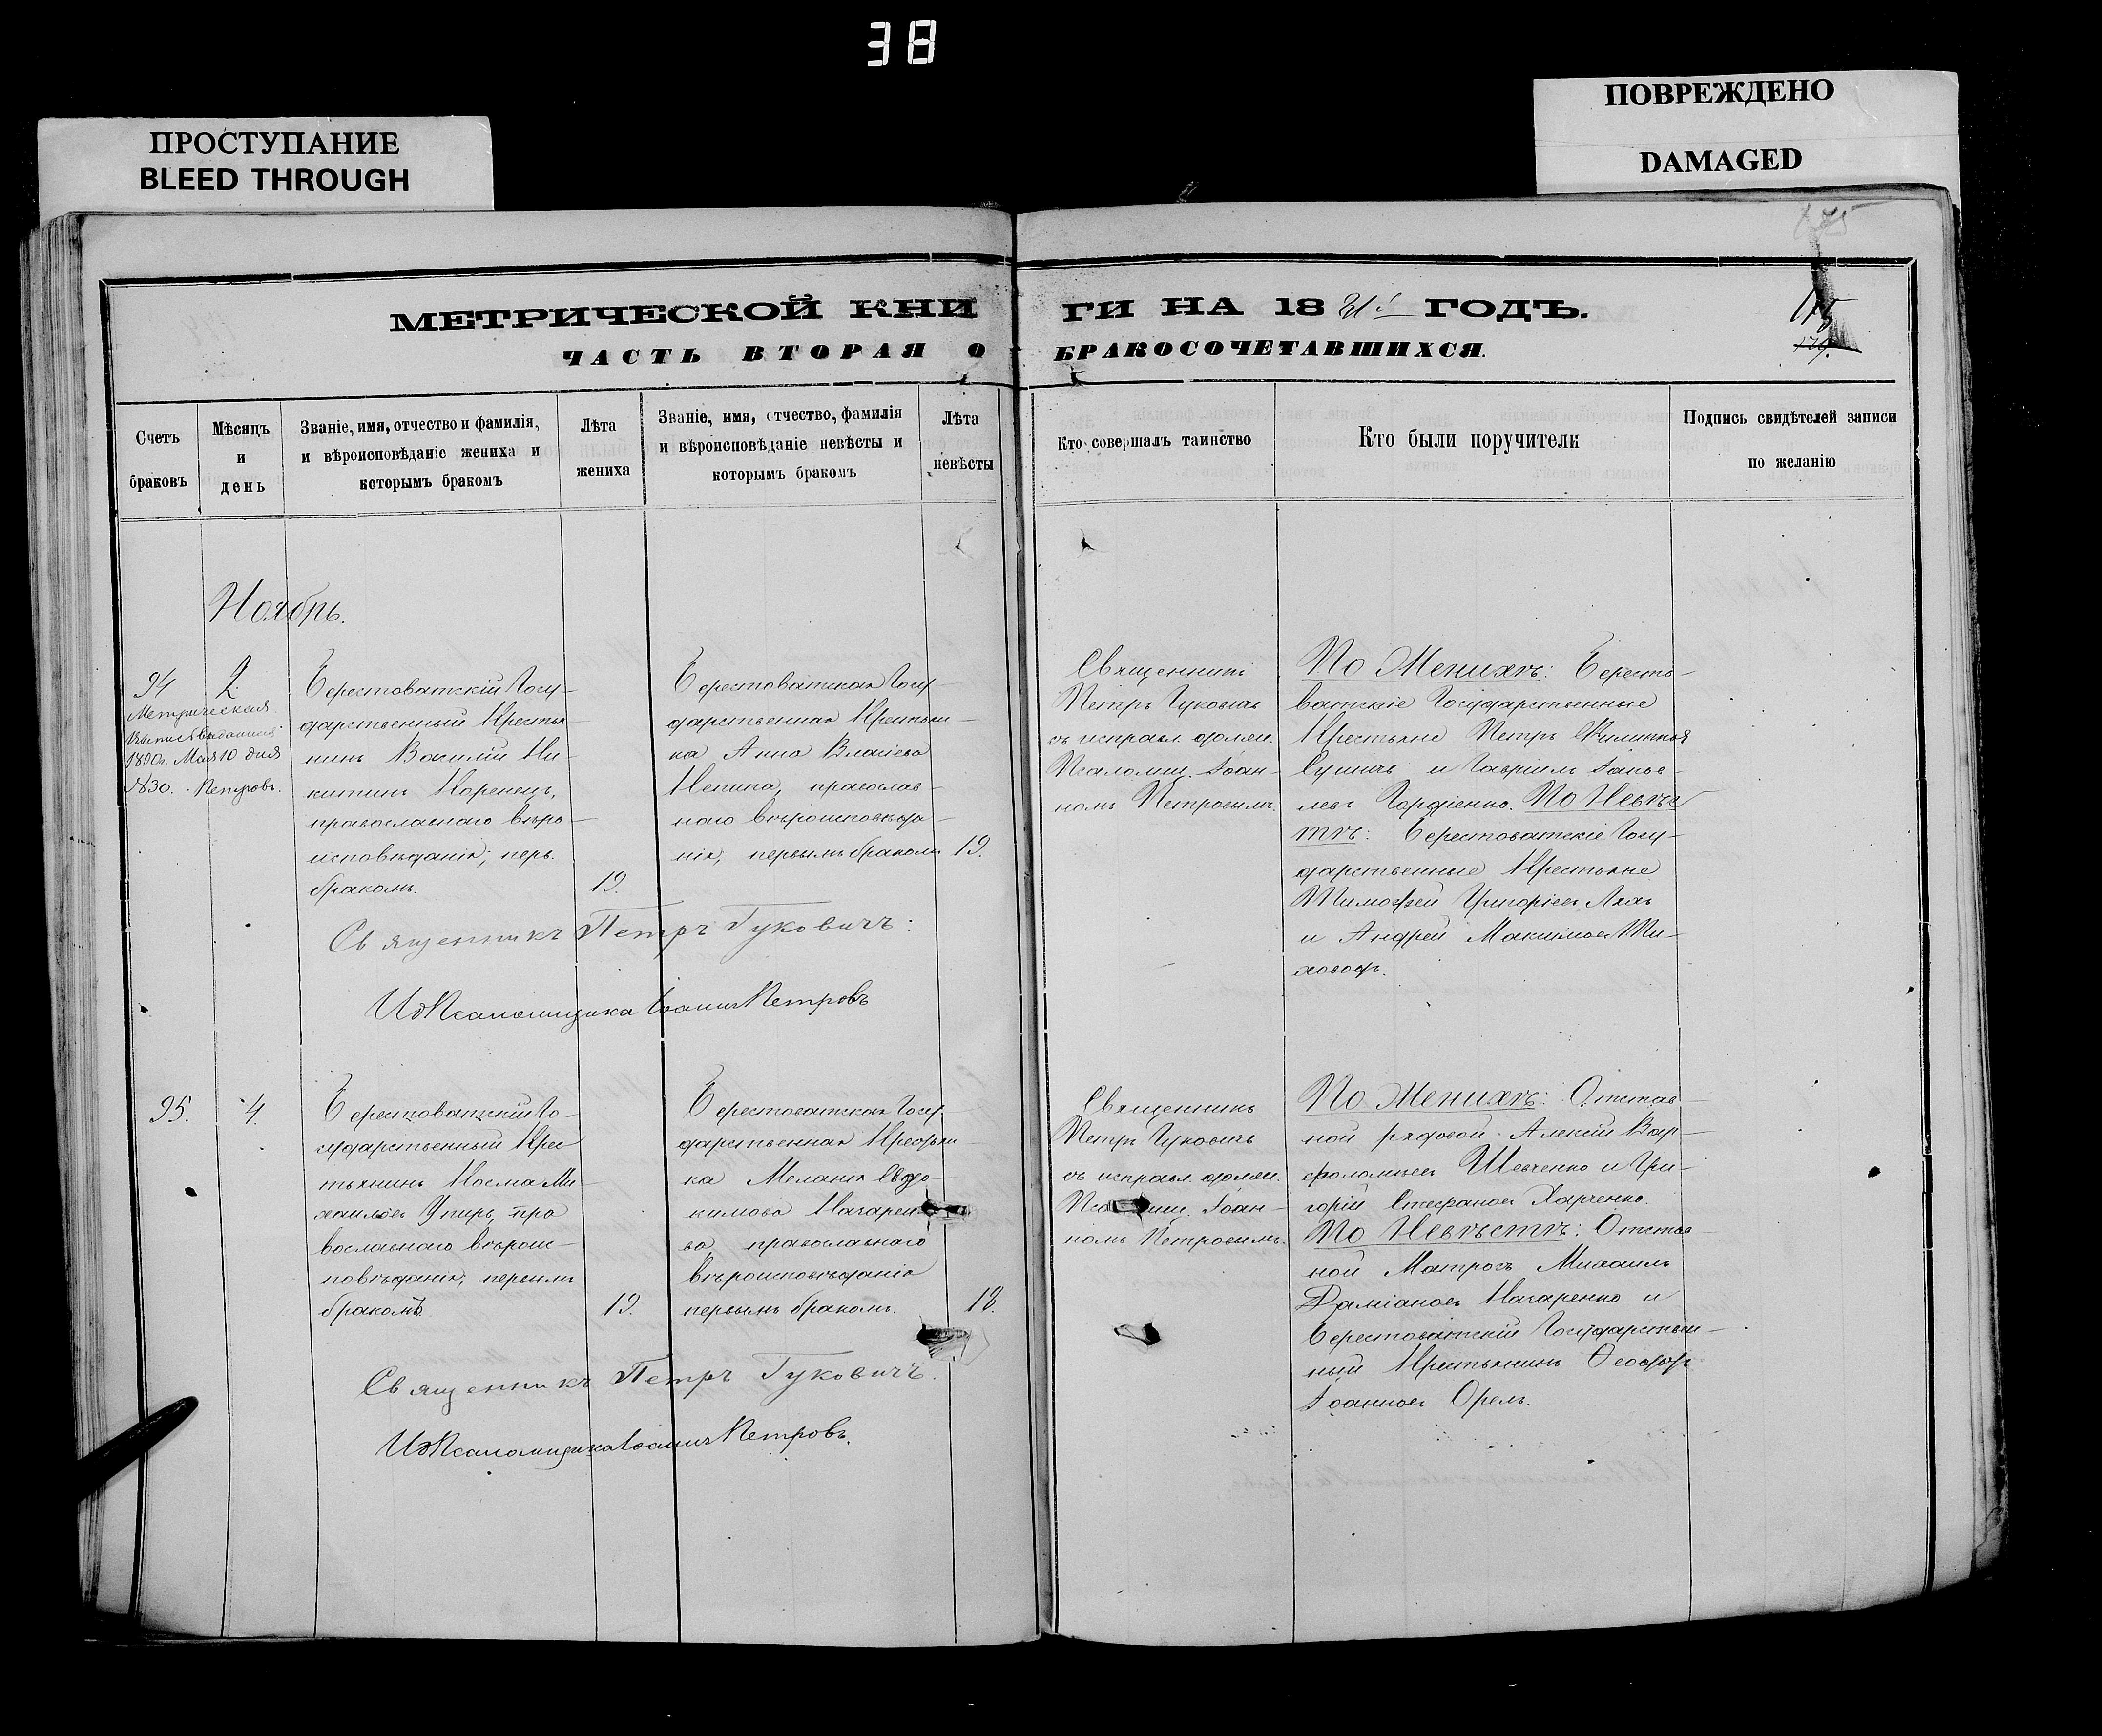 38
ПРОСТУПАНИЕ
BLEED THROUGH
ПОВРЕЖДЕНО
DAMAGED
МЕТРИЧЕСКОЙ КНИ
ГИ НА 18 ГОДЪ.
115
ЧАСТЬ ВТОРАЯ О
БРАКОСОЧЕТАВШИХСЯ.
Счетъ
браковъ
Мѣсяцъ
и
день
Званіе, имя, отчество и фамилія,
и вѣроисповѣданіе жениха и
которымъ бракомъ
Лѣта
жениха
Званіе, имя, отчество, фамилія
и вѣроисповѣданіе невѣсты и
которымъ бракомъ
Лѣта
невѣсты
Кто совершалъ таинство
Кто были поручители
Подпись свидѣтелей записи
по желанію
Ноябрь.
94
Метрическая
1890г. Мая 10 дня
№30. Петровъ.
2
Берестоватскій Госу-
дарственный Крестья-
нинъ Василій Ни-
китинъ Коренець,
православнаго вѣро-
исповѣданія; перв.
бракомъ.
19.
Берестоватская Госу-
дарственная Крестьян-
ка Анна Власіева
православ-
наго вѣроисповѣда-
нія, первымъ бракомъ
19.
Священникъ
Петръ Гуковичъ
съ исправл. должн.
Псаломщ. Іоан-
номъ Петровымъ.
По Женихѣ: Бересто-
ватскіе Государственные
Крестьяне Петръ
и Гавріилъ Іаков-
левъ Гордіенко. По Невѣс
тѣ: Берестоватскіе Госу-
дарственные Крестьяне
Тимофей Григоріевъ Ляхъ
и Андрей Максимовъ Ти-
ховодъ.
Священникъ Петръ Гуковичъ:
ИдПсаломщика Іоаннъ Петровъ
95.
4.
Берестоватскій Го-
сударственный Крес
тьянинъ Косма Ми-
хаиловъ Упирь, пра
вославнаго вѣроис-
повѣданія, первымъ
бракомъ.
19.
Берестоватская Госу-
дарственная Крестьян
ка Меланія Евдо-
кимова Качарен
ва, православнаго
вѣроисповѣданія
первымъ бракомъ.
18.
Священникъ
Петръ Гуковичъ
съ исправл. должн.
Іоан-
номъ Петровымъ.
По Женихѣ: Отстав-
ной рядовой Алексій Вар-
фоломеевъ Шевченко и Гри-
горій Стефановъ Харченко.
По Невѣстѣ: Отстав-
ной Матросъ Михаилъ
Даміановъ Качаренко и
Берестоватскій Государствен-
ный Крестьянинъ Ѳеодоръ
Іоанновъ Орелъ.
Священникъ Петръ Гуковичъ.
ИдПсаломщика Іоаннъ Петровъ.